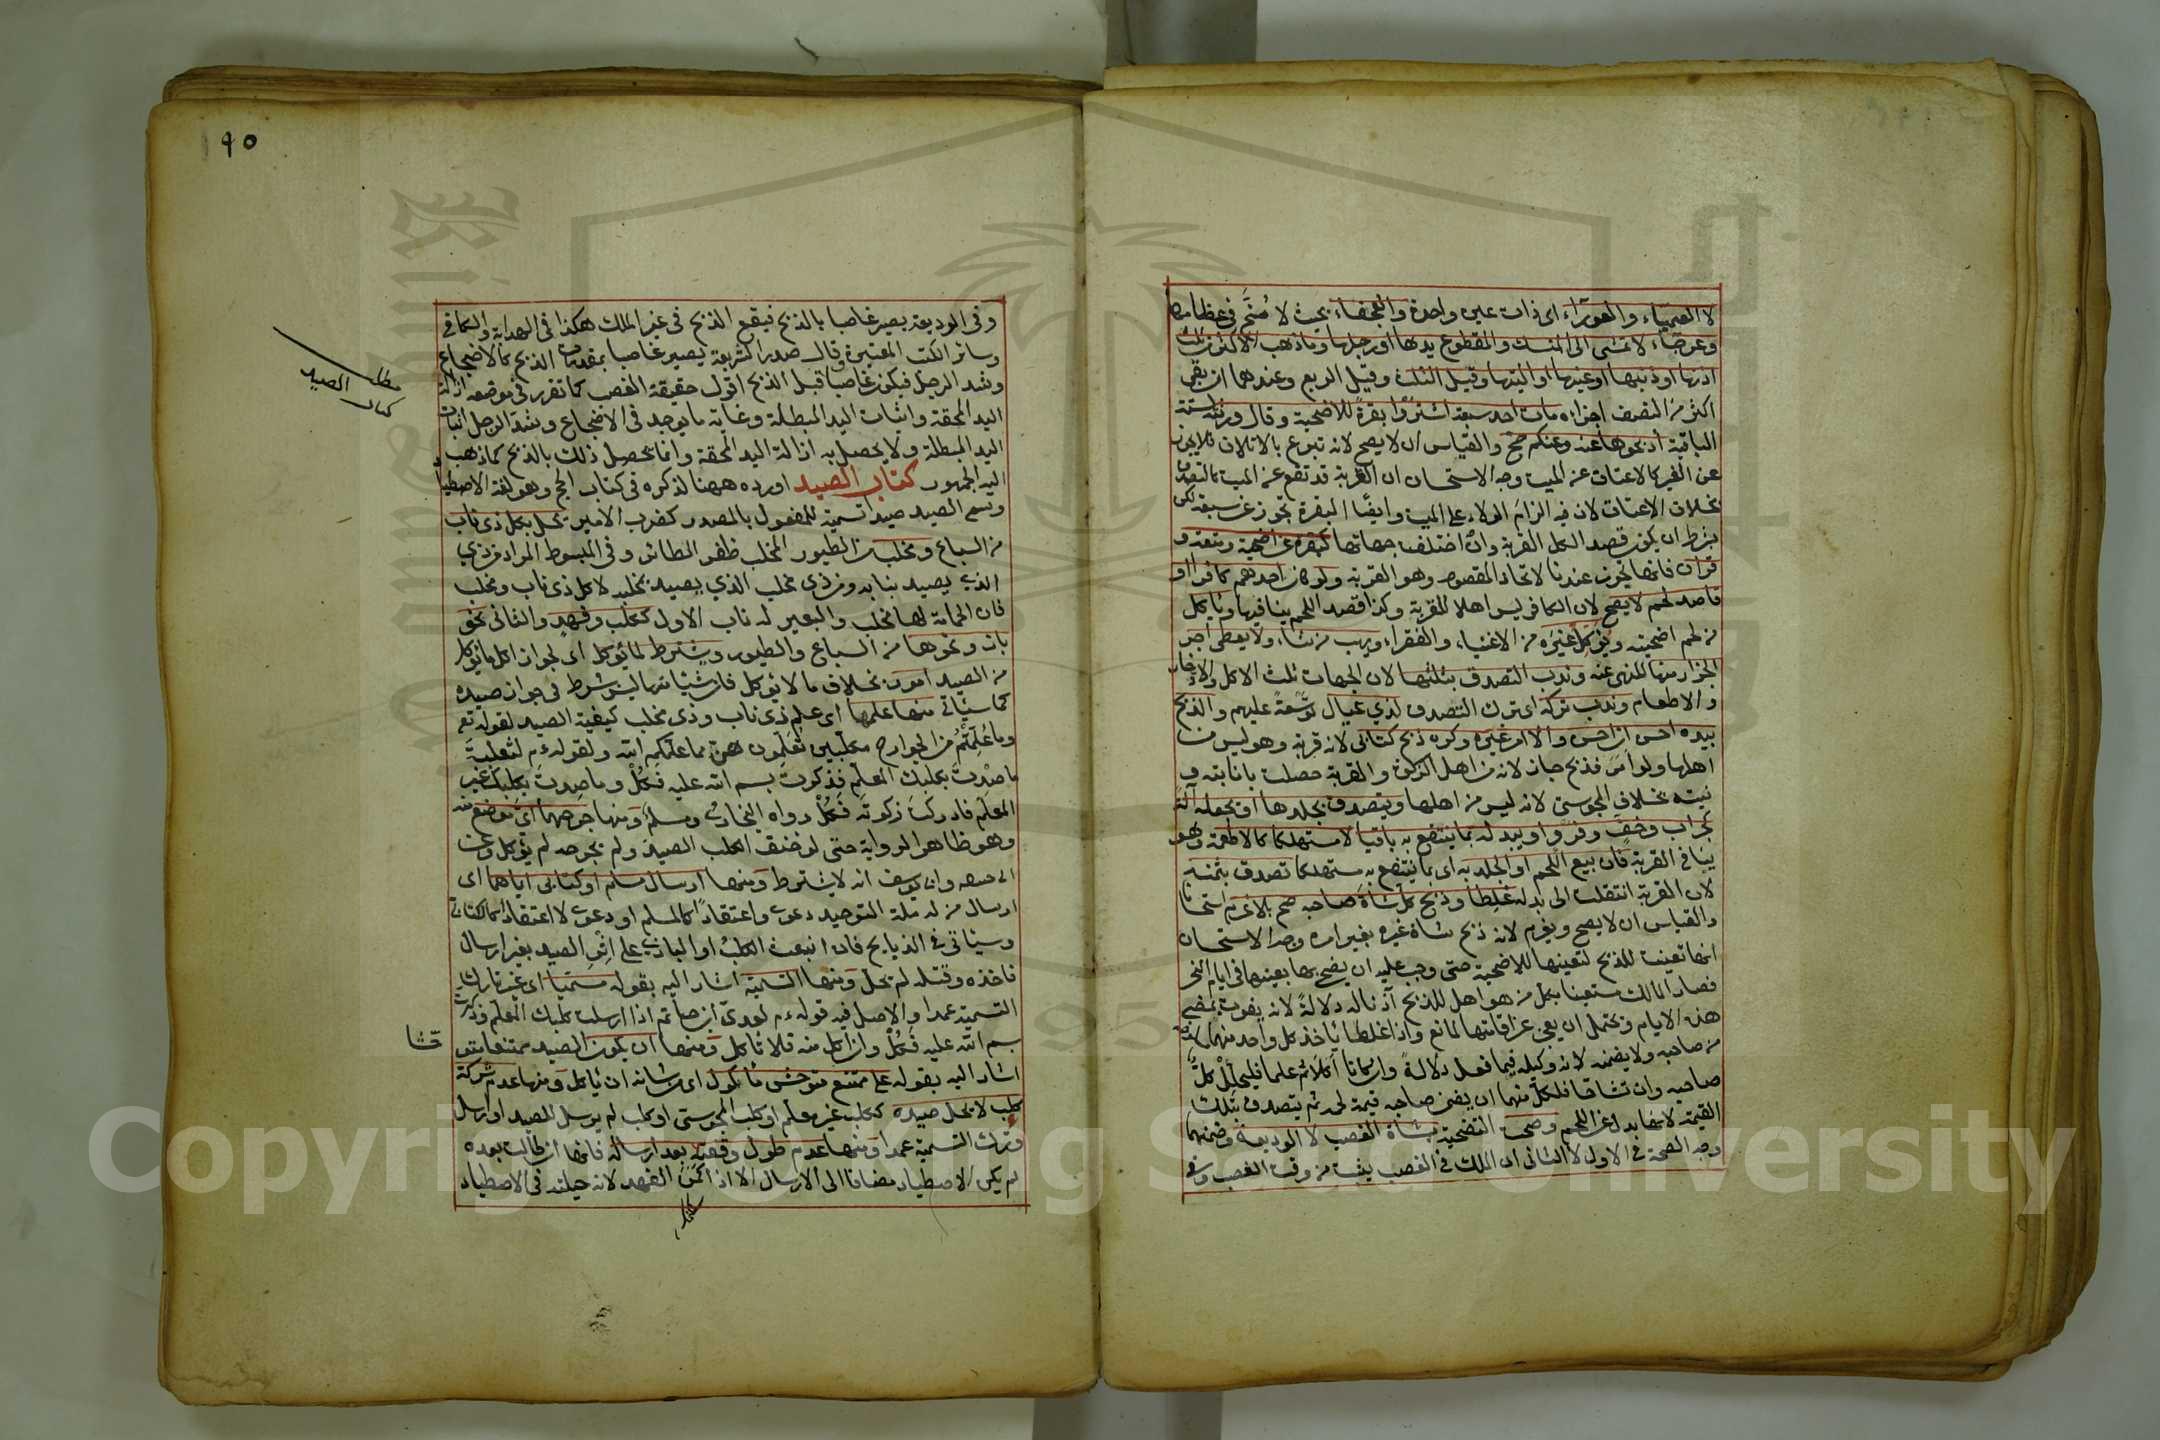 لا العمياء والعوراء اى ذات عين واحدة والعجفاء بحيث لا مخ فى عظامها
وعرجاء لا تمشى الى المنسك والمقطوع يدها او رجلها وما ذهب الاكثر من ثلث
اذنها او ذنبها او عينها او اليتها وقيل الثلث وقيل الربع وعندهما ان بقى
اكثر من النصف اجزاه مات احد سبعة اشتروا بقرة للاضحية وقال ورثته الستة
الباقية اذبحوها عنه وعنكم صح والقياس ان لا يصح لانه تبرع بالاتلاف فلا يجوز
عن الغير كالاعتاق عن الميت وجه الاستحسان ان القربة قد تقع عن الميت كالتصدق
بخلاف الاعتاق لان فيه الزام الولاء على الميت وايضا البقرة تجوز عن سبعة لكن
بشرط ان يكون قصد الكل القربة وان اختلفت جهاتها كبقرة عن اضحية ومتعة و
قران فانها تجوز عندنا لاتحاد المقصود وهو القربة ولو كان احدهم كافرا او
قاصد لحم لا يصح لان الكافر ليس اهلا للقربة وكذا قصد اللحم ينافيها وياكل
من لحم اضحيته ويؤكل غيره من الاغنياء والفقراء ويهب من شاء ولا يعطى اجر
الجزار منها للنهى عنه وندب التصدق بثلثها لان الجهات ثلث الاكل والادخار
والاطعام وندب تركه اى ترك التصدق لذي عيال توسعة عليهم والذبح
بيده احسن ان احسن والا امر غيره وكره ذبح كتابى لانه قربة وهو ليس من
اهلها ولو امر فذبح جاز لانه من اهل الزكوة والقربة حصلت بانابته و
نيته بخلاف المجوسى لانه ليس من اهلها ويتصدق بجلدها او يجعله آلة
كجراب وخف وفرو او يبدله بما ينتفع به باقيا لا مستهلكا كالاطعمة وهو
يبنا فى القربة فان بيع اللحم او الجلد به اى بما ينتفع به مستهلكا تصدق بثمنه
لان القربة انتقلت الى بدله غلطا وذبح كل شاة صاحبه صح بلا غرم استحسانا
والقياس ان لا يصح ويغرم لانه ذبح شاة غيره بغير امره وجه الاستحسان
انها تعينت للذبح لتعينها للاضحية حتى وجب عليه ان يضحى بها بعينها فى ايام النحر
فصار المالك مستعينا بكل من هو اهل للذبح آذنا له دلالة لانه يفوت بمضى
هذه الايام ويحتمل ان يعجز عن اقامتها لمانع واذا غلطا ياخذ كل واحد منهما
من صاحبه ولا يضمنه لانه وكيله فيما فعل دلالة وان كانا اكلا ثم علما فليحلل كل
صاحبه وان تشاحا فلكل منهما ان يضمن صاحبه قيمة لحمه ثم يتصدق بتلك
القيمة لانها بدل عن اللحم وصحت التضحية بشاة الغصب لا الوديعة وضمنها
وجه الصحة فى الاول لا الثانى ان الملك فى الغصب يثبت من وقت الغصب وفى
١٩٥
وفى الوديعة يصير غاصبا بالذبح فيقع الذبح فى غير الملك هكذا فى الهداية والكافى
وسائر الكتب المعتبرة وقال صدر الشريعة يصير غاصبا بمقدمات الذبح كالاضجاع
وشد الرجل فيكون غاصبا قبل الذبح اقول حقيقة الغصب كما تقرر فى موضعه ازالة
اليد المحقة واثبات اليد المبطلة وغاية ما يوجد فى الاضجاع وشد الرجل اثبات
اليد المبطلة ولا يحصل به ازالة اليد المحقة وانما يحصل ذلك بالذبح كما ذهب
اليه الجمهور كتاب الصيد اورده ههنا لذكره فى كتاب الحج وهو لغة الاصطياد
ويسمى الصيد صيدا تسمية للمفعول بالمصدر كضرب الامير يحل بكل ذى ناب
من السباع ومخلب من الطيور المخلب ظفر الطائر وفى المبسوط المراد من ذى
الناب الذى يصيد بنابه ومن ذى مخلب الذي يصيد بمخلبه لا كل ذى ناب ومخلب
فان الحمامة لها مخلب والبعير له ناب الاول ككلب وفهد والثانى نحو
باز ونحوها من السباع والطيور ويشترط لما يؤكل اى لجواز اكل ما يؤكل
من الصيد امور بخلاف ما لا يؤكل فان شيئا منها ليس بشرط فى جواز صيده
كما سياتى منها علمهما اى علم ذى ناب وذى مخلب كيفية الصيد لقوله تع
وما علمتم من الجوارح مكلبين تعلمونهن مما علمكم الله ولقوله عم لثعلبة
ما صدت بكلبك المعلم فذكرت بسم الله عليه فكل وما صدت بكلبك غير
المعلم فادركت زكوته فكل رواه البخارى ومسلم ومنها جرحهما اى موضع منه
وهو ظاهر الرواية حتى لو خنق الكلب الصيد ولم يجرحه لم يؤكل وعن
ابى حنيفة وابى يوسف انه لا يشترط ومنها ارسال مسلم او كتابى اياهما اى
ارسال من له ملة التوحيد دعوى واعتقادا كالمسلم او دعوى لا اعتقادا كالكتابى
وسياتى فى الذبايح فان انبعث الكلب او البازى على اثر الصيد بغير ارسال
فاخذه وقتله لم يحل ومنها التسمية اشار اليه بقوله مسميا اى غير تارك
التسمية عمدا والاصل فيه قوله عم لعدى بن حاتم اذا ارسلت كلبك المعلم وذكرت
بسم الله عليه فكل وان اكل منه فلا تاكل ومنها ان يكون الصيد ممتنعا متوحشا
اشار اليه بقوله على ممتنع متوحش ماكول اى من شانه ان ياكل ومنها عدم شركة
كلب لا يحل صيده ككلب غير معلم او كلب المجوسى او كلب لم يرسل للصيد او ارسل
وترك التسمية عمدا ومنها عدم طول وقفته بعد ارساله فانها ان طالت بعده
لم يكن الاصطياد مضافا الى الارسال الا اذا اكمن الفهد لانه حيلته فى الاصطياد
مطلب
كتاب الصيد
Copyright © King Saud University
1957